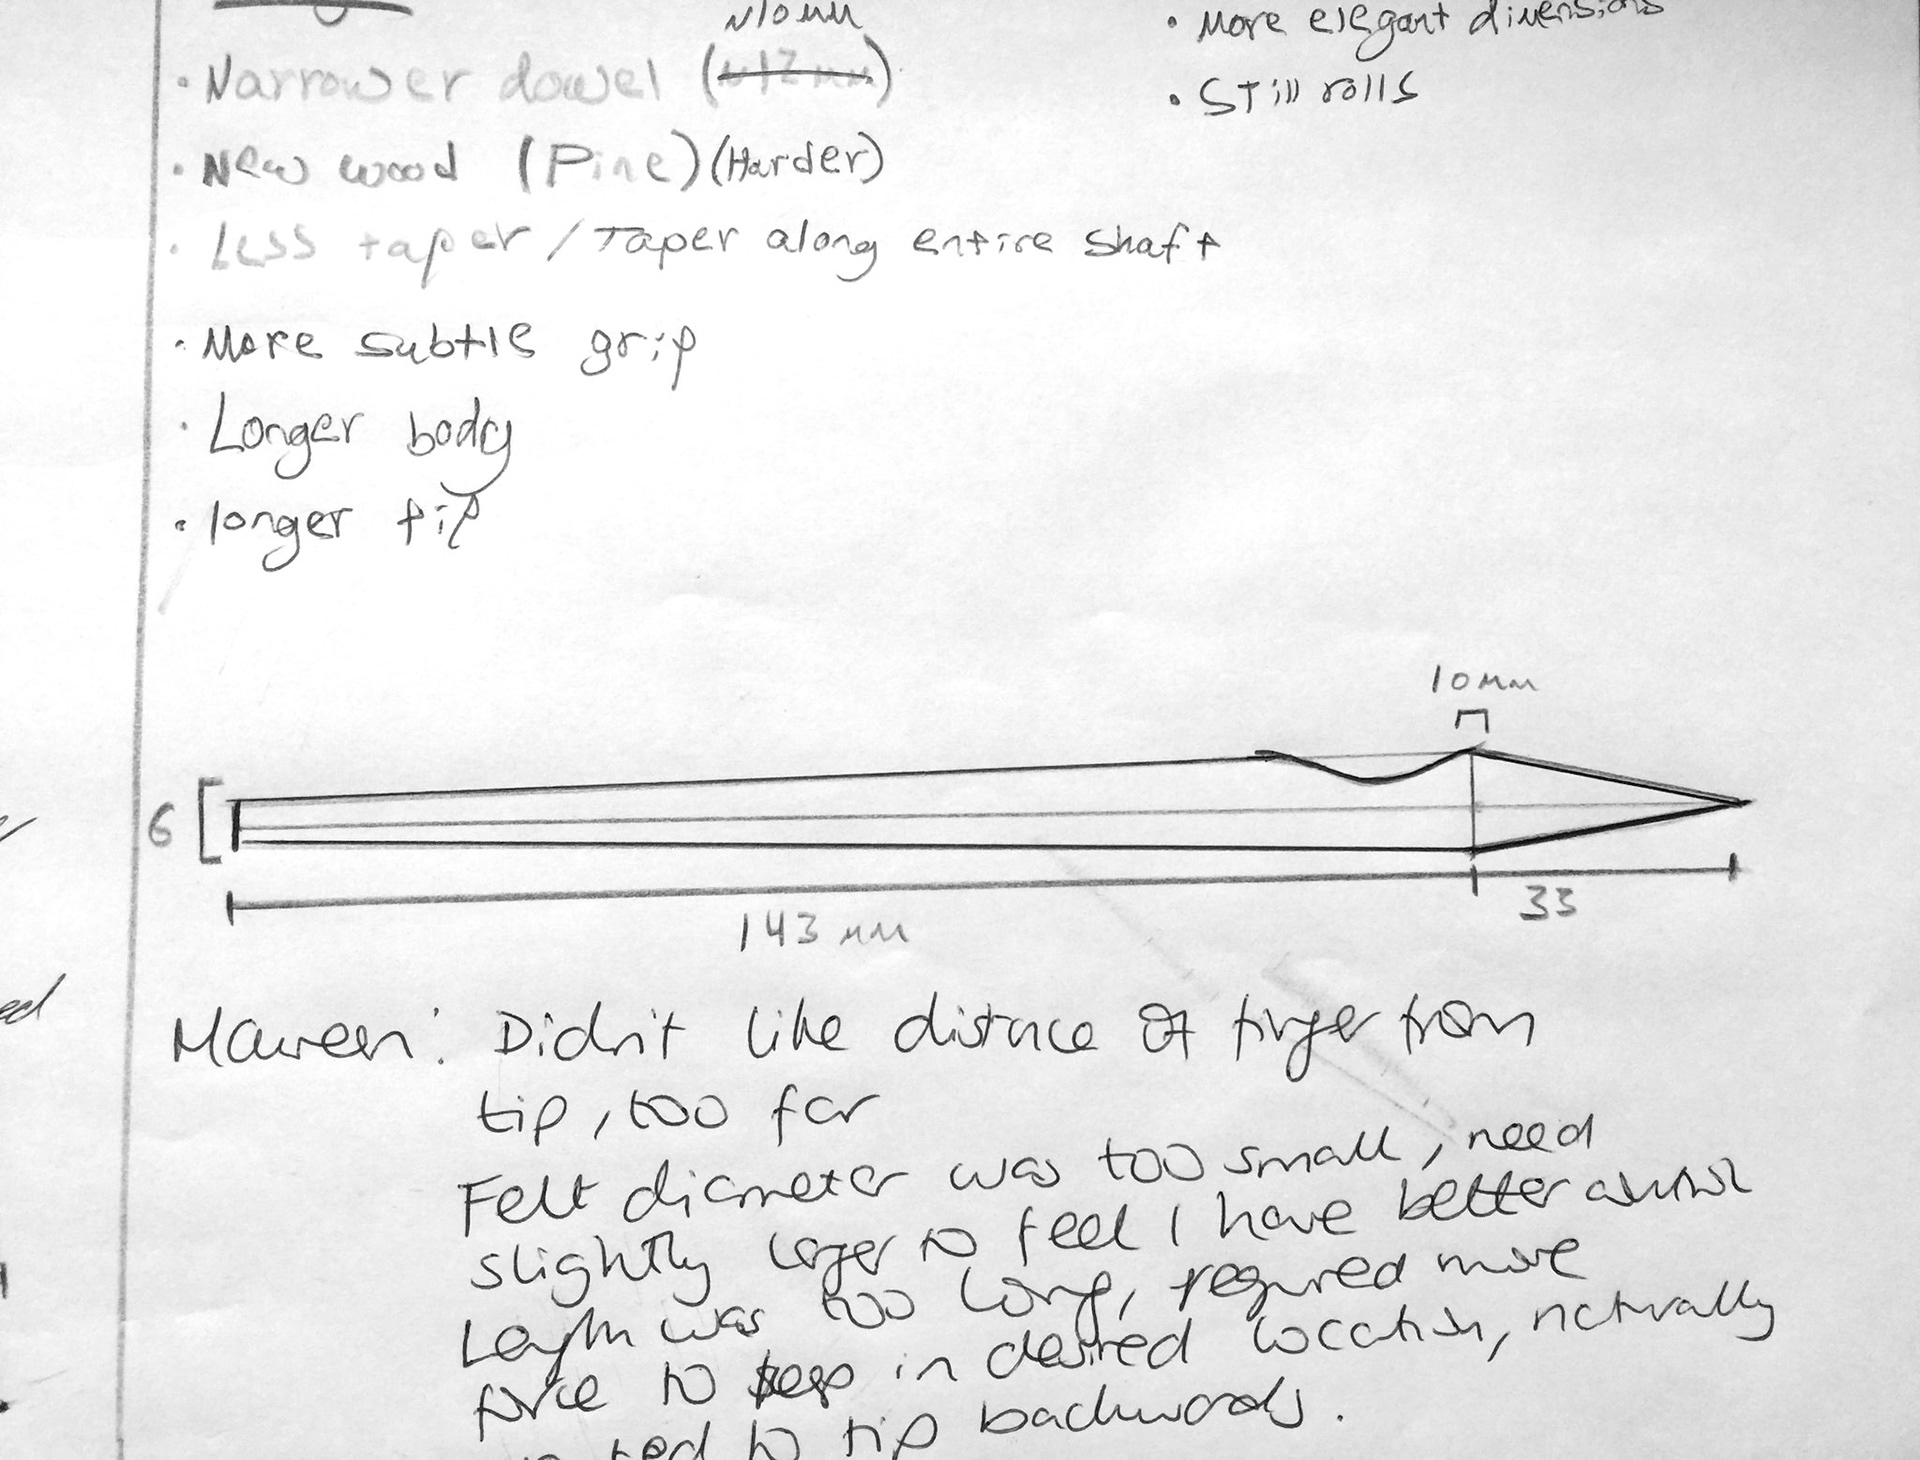 ~10mm
• Narrower dowel (~12mm)
• New wood (Pine) (Harder)
• Less taper / Taper along entire shaft
• More subtle grip
• Longer body
• longer tip
• More elegant dimensions
• Still rolls
10mm
6
143 mm
33
Maureen: Didn't like distance of finger from
tip, too far
Felt diameter was too small, need
slightly larger to feel I have better control
Length was too long, required more
force to keep in desired location, naturally
to tip backwards.